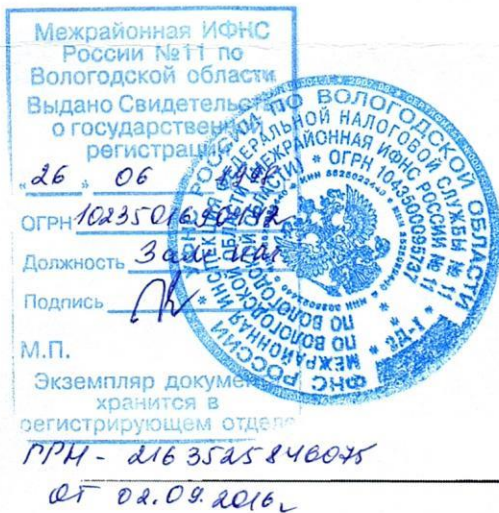 Межрайонная ИФНС
России №11 по
Вологодской области
Выдано Свидетельство
о государственной
регистрации
"26" 06 1998
ОГРН 1023501690192
Должность Зам. нач.
Подпись
М.П.
Экземпляр документа
хранится в
регистрирующем отделе
ГРН - 2163525846075
от 02.09.2016г
ФНС РОССИИ ПО ВОЛОГОДСКОЙ ОБЛАСТИ
ФЕДЕРАЛЬНОЙ НАЛОГОВОЙ СЛУЖБЫ № 11
МЕЖРАЙОННАЯ ИФНС РОССИИ № 11
ПО ВОЛОГОДСКОЙ ОБЛАСТИ
ОГРН 1043500095737